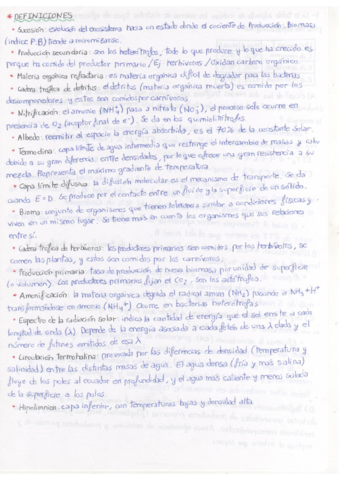 * DEFINICIONES
• Sucesión: evolución del ecosistema hacia un estado donde el cociente de Producción, Biomasa
(índice P.B) tiende a
• Producción secundaria: son los heterótrofos, todo lo que produce y lo que ha crecido es
porque ha comido del productor primario / Ej herbívoros / Oxidan carbono orgánico
• Materia orgánica refractaria: es materia orgánica difícil de degradar para las bacterias
• Cadena trófica de detritus: el detritus (materia orgánica muerta) es comido por los
descomponedores y estos son comidos por carnívoros
• Nitrificación: el amonio (NH₄⁺) pasa a nitrato (NO₃⁻), el proceso sólo ocurre en
presencia de O₂ (aceptor final de e⁻). Se da en los quimiolitótrofos
• Albedo: reemitir al espacio la energía absorbida, es el 70% de la constante solar.
• Termoclina: capa límite de agua intermedia que restringe el intercambio de masas y calor
debido a su gran diferencia entre densidades, por lo que ofrece una gran resistencia a su
mezcla. Representa el máximo gradiente de temperatura
• Capa límite difusiva: la difusión molecular es el mecanismo de transporte. Se da
cuando E = D. Se produce por el contacto entre un fluido y la superficie de un sólido.
• Bioma: conjunto de organismos que tienen tolerancia similar a condiciones físicas y
viven en un mismo lugar. Se tiene más en cuenta los organismos que sus relaciones
entre sí.
• Cadena trófica de herbívoros: los productores primarios son comidos por los herbívoros, se
comen las plantas, y estos son comidos por los carnívoros.
• Producción primaria: tasa de producción de nueva biomasa por unidad de superficie
(o volumen). Los productores primarios fijan el CO₂. Son los autótrofos.
• Amonificación: la materia orgánica degrada el radical amino (NH₂) pasando a NH₃+H⁺
transformándose en amonio (NH₄⁺). Ocurre en bacterias heterótrofas
• Espectro de la radiación solar: indica la cantidad de energía que el sol emite a cada
longitud de onda (λ). Depende de la energía asociada a cada fotón de una λ dada y el
número de fotones emitidos de esa λ
• Circulación Termohalina: provocada por las diferencias de densidad (temperatura y
salinidad) entre las distintas masas de agua. El agua densa (fría y más salina)
fluye de los polos al ecuador en profundidad, y el agua más caliente y menos salada
de la superficie a los polos
• Hipolimnion: capa inferior, con temperaturas bajas y densidad alta